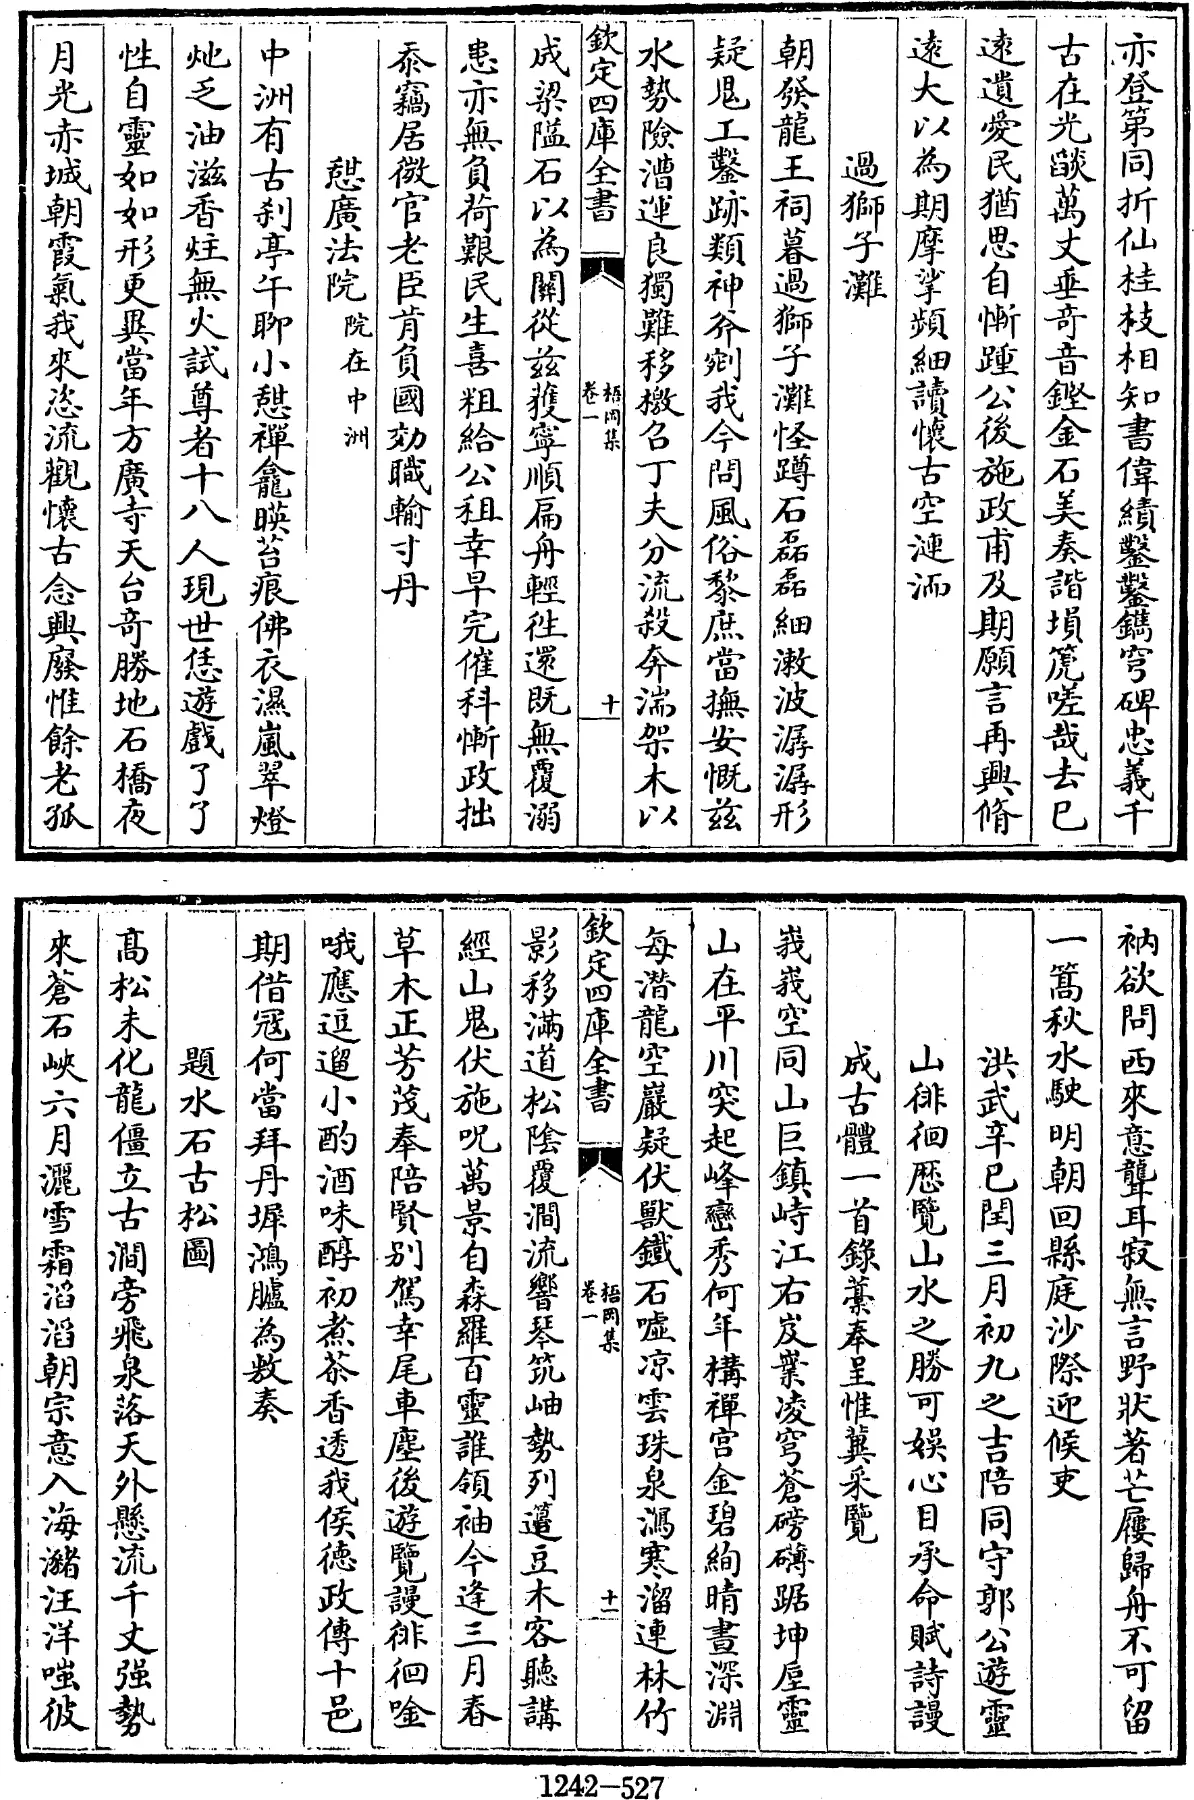 亦登第同折仙桂枝相知書偉績鑿鑿鐫穹碑忠義千
古在光燄萬丈垂奇音鏗金石美奏諧塤箎嗟哉去已
遠遺愛民猶思自慚踵公後施政甫及期願言再興脩
遠大以為期摩挲頻細讀懷古空漣洏
過獅子灘
朝發龍王祠暮過獅子灘怪蹲石磊磊細漱波潺潺形
疑鬼工鑿跡類神斧剜我今問風俗黎庶當撫安慨兹
水勢險漕運良獨難移檄召丁夫分流殺奔湍架木以
欽定四庫全書
梧岡集
卷一
十
成梁隘石以為關從兹獲寧順扁舟輕往還既無覆溺
患亦無負荷艱民生喜粗給公租幸早完催科慚政拙
忝竊居微官老臣肯負國効職輸寸丹
憇廣法院院在中洲
中洲有古刹亭午聊小憇禪龕暎苔痕佛衣濕嵐翠燈
灺乏油滋香炷無火試尊者十八人現世恁遊戲了了
性自靈如如形更異當年方廣寺天台奇勝地石橋夜
月光赤城朝霞氣我來恣流觀懷古念興廢惟餘老孤
衲欲問西來意聾耳寂無言野狀著芒屨歸舟不可留
一篙秋水駛明朝回縣庭沙際迎候吏
洪武辛巳閏三月初九之吉陪同守郭公遊靈
山徘徊歷覽山水之勝可娛心目承命賦詩謾
成古體一首錄藁奉呈惟冀采覽
峩峩空同山巨鎮峙江右岌嶪凌穹蒼磅礴踞坤垕靈
山在平川突起峰巒秀何年構禪宫金碧絢晴晝深淵
每潛龍空巖疑伏獸鐵石嘘凉雲珠泉瀉寒溜連林竹
欽定四庫全書
梧岡集
卷一
十一
影移滿道松陰覆澗流響琴筑岫勢列籩豆木客聽講
經山鬼伏施呪萬景自森羅百靈誰領袖今逢三月春
草木正芳茂奉陪賢别駕幸尾車塵後遊覽謾徘徊唫
哦應逗遛小酌酒味醇初煮茶香透我侯德政傳十邑
期借冦何當拜丹墀鴻臚為敷奏
題水石古松圖
髙松未化龍僵立古澗旁飛泉落天外懸流千丈强勢
來蒼石峽六月灑雪霜滔滔朝宗意入海瀦汪洋嗤彼
1242-527